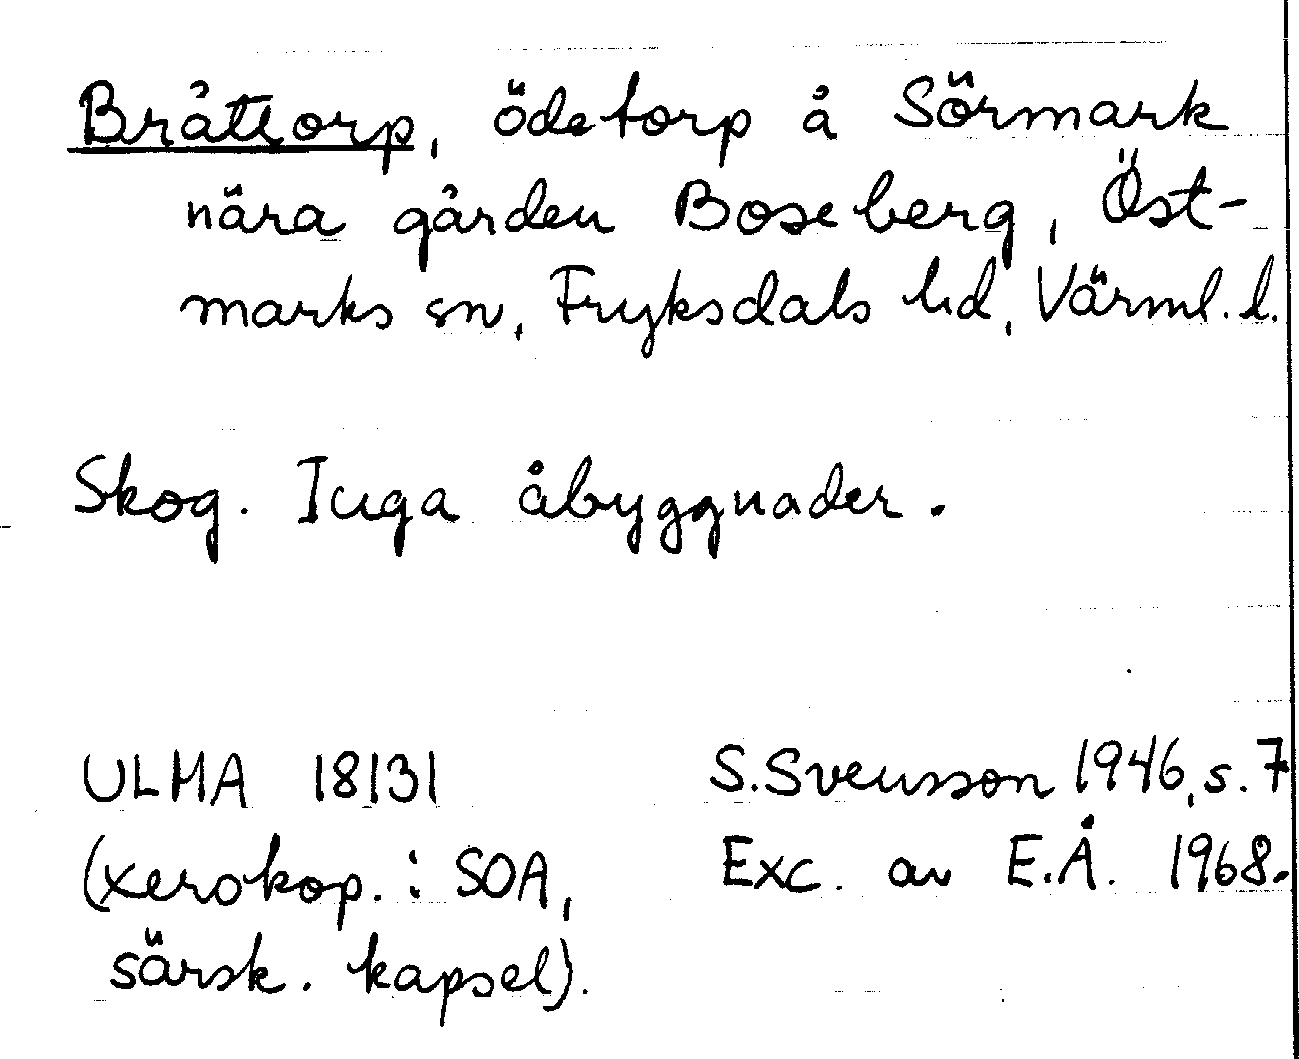 Bråttorp, ödetorp å Sörmark
nära gården Boseberg, Öst-
marks sn, Fryksdals hd, Värml. l.
Skog. Inga åbyggnader.
ULMA 18131
(xerokop. i SOA,
särsk. kapsel).
S. Svensson 1946, s. 7
Exc. av E.Å. 1968.